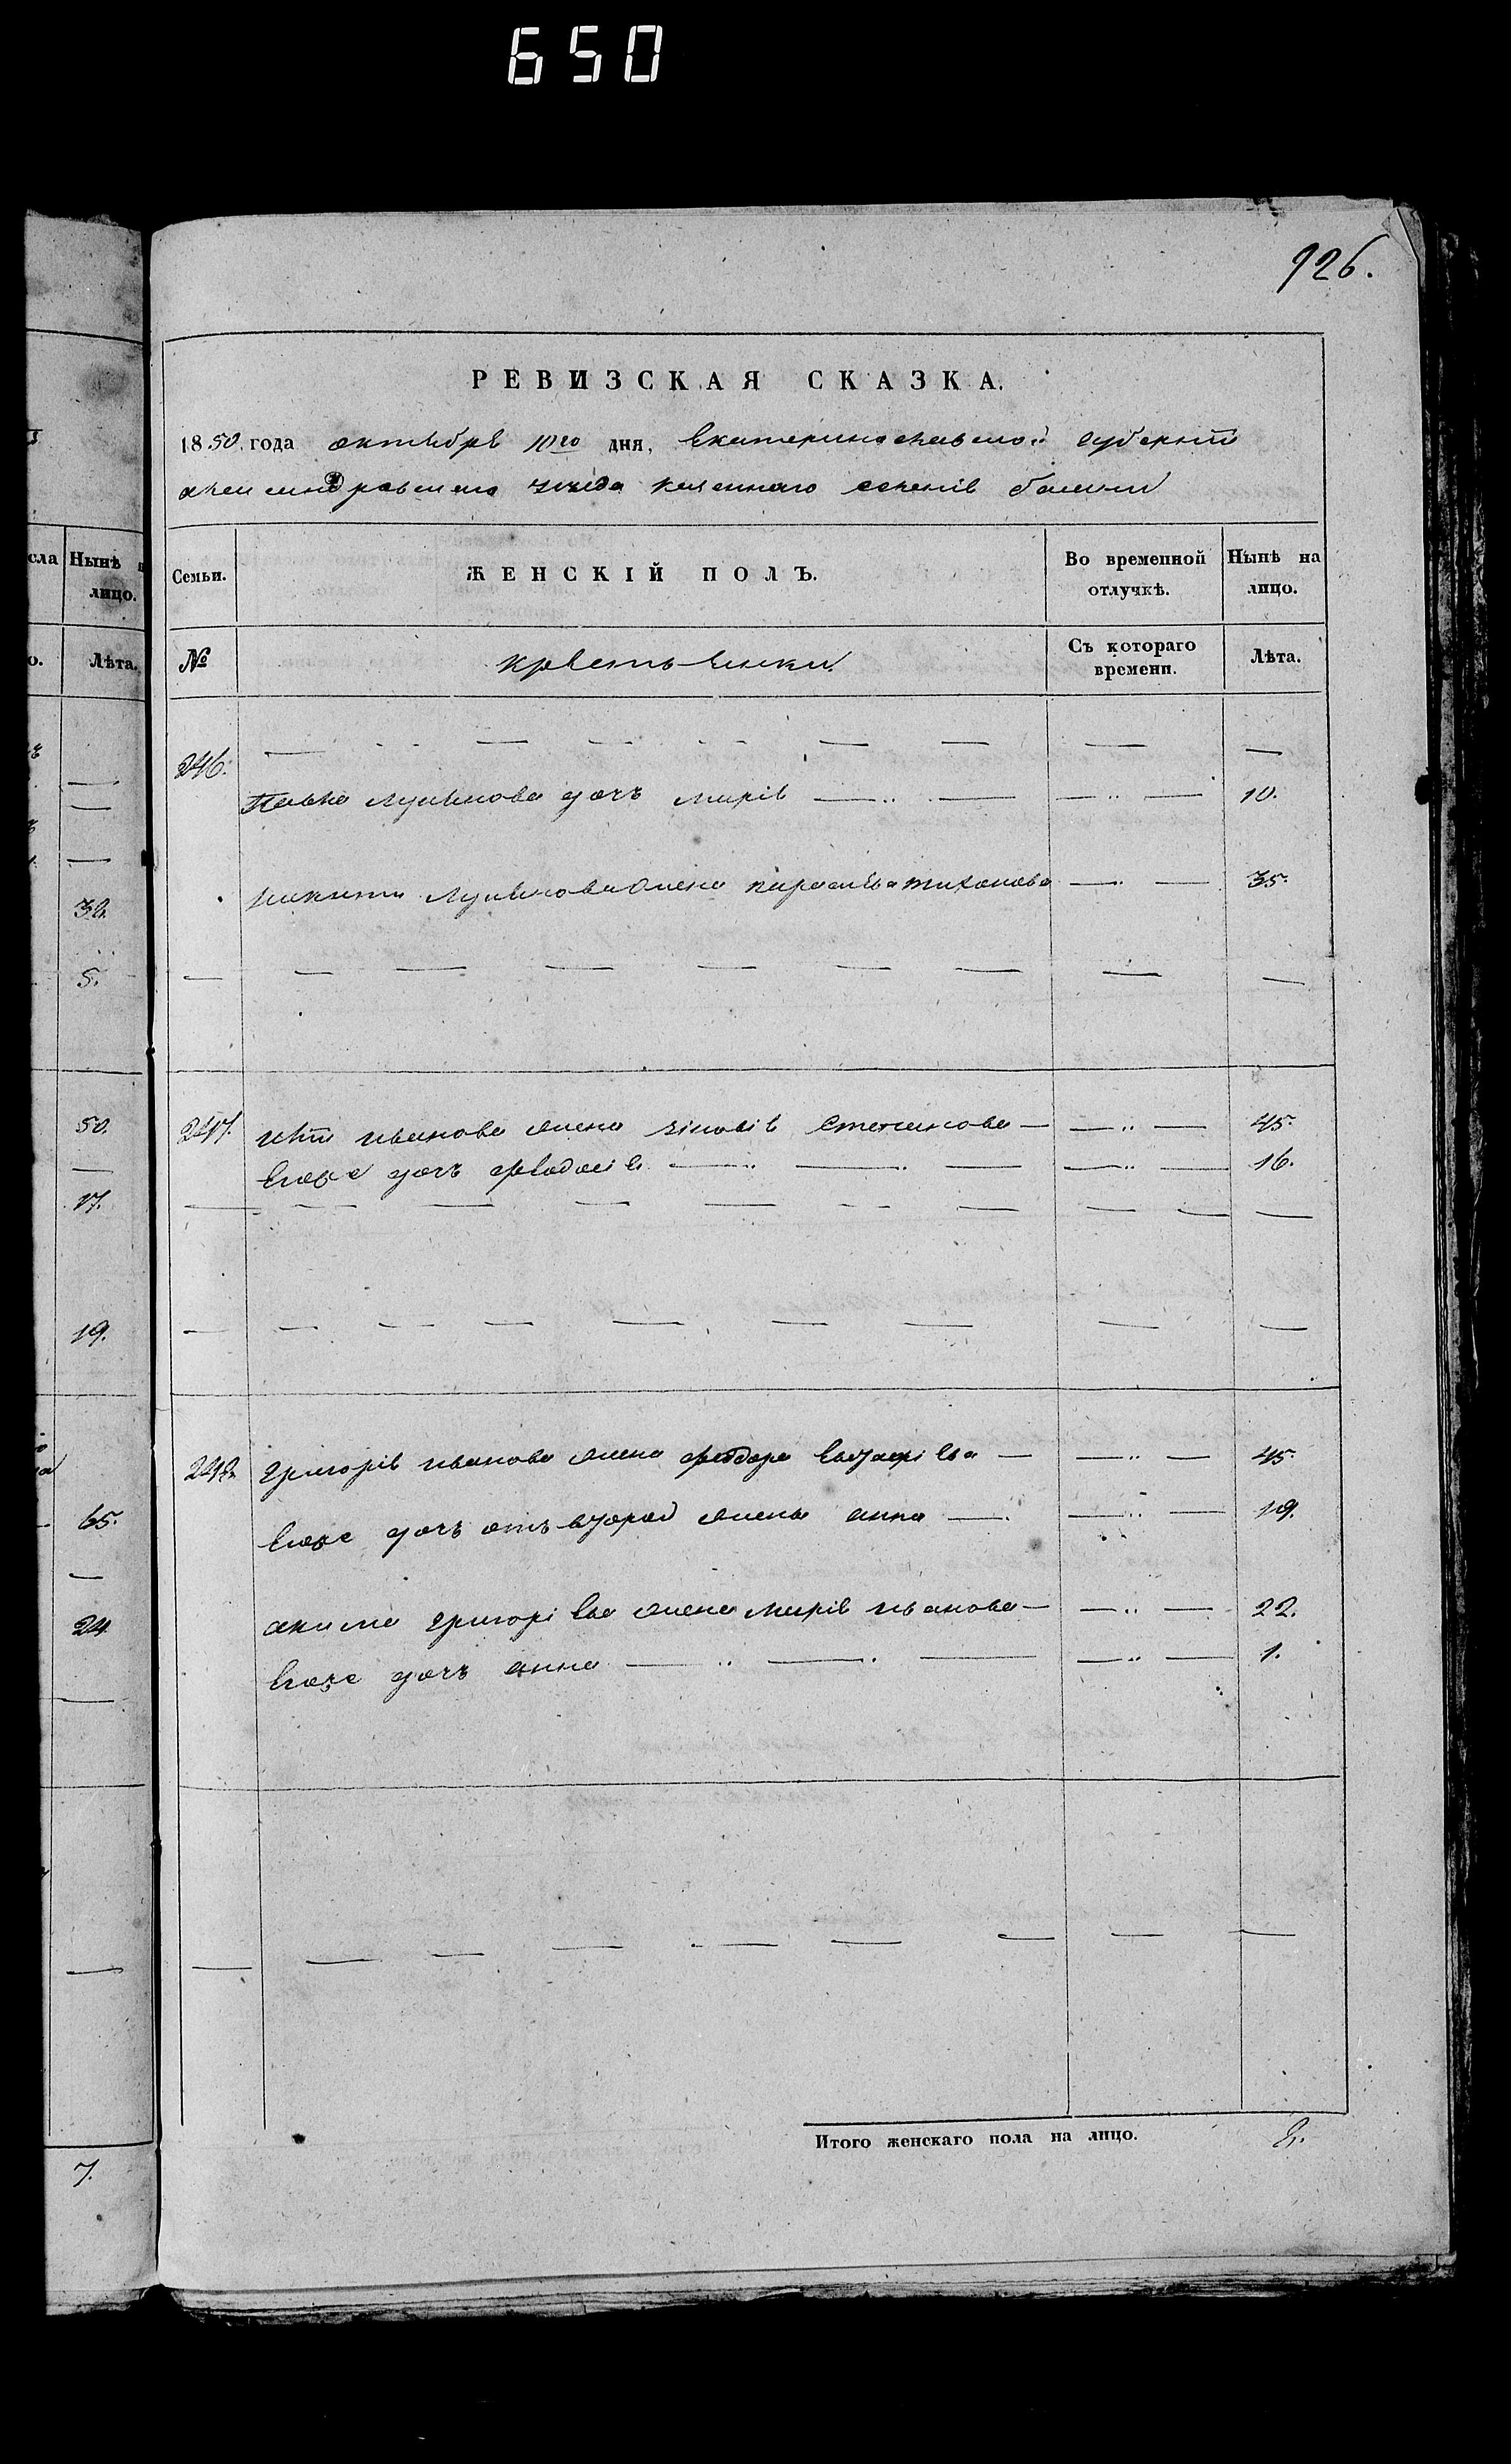 650
926.
РЕВИЗСКАЯ СКАЗКА.
1850 года октября 10го дня, Екатеринославской губернии
александровского уезда казенного селения
сла Нынѣ
лицо.
Семьи. ЖЕНСКІЙ ПОЛЪ. Во временной отлучкѣ. Нынѣ на лицо.
о. Лѣта.
№ крестьянки Съ котораго времени. Лѣта.
246.
Павла Лукянова дочь Марія 10.
Никиты Лукянова жена парасковя тихонова 35.
30.
5.
50.
247. иванова жена зіновія Степанова 45.
Егоже дочь феодосія 16.
17.
19.
248. григорія иванова жена федора 45.
65.
Егоже дочь отъ второй жены анна 19.
акима григоріева жена марія иванова 22.
24
Егоже дочь анна 1.
Итого женскаго пола на лицо. 8.
7.